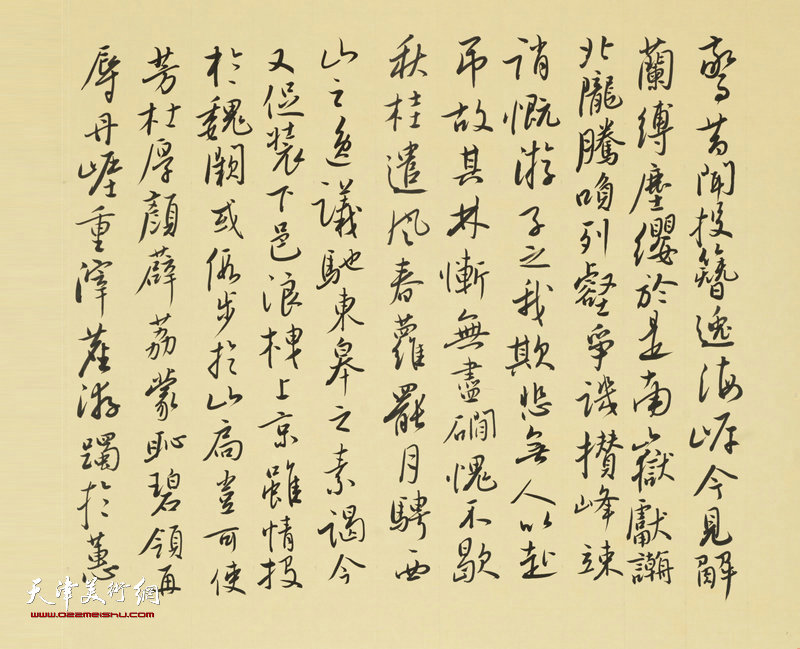 驚昔聞投簪逸海岸今見解
蘭縛塵纓於是南嶽獻謿
北隴騰笑列壑爭譏攢峰竦
誚慨游子之我欺悲無人以赴
吊故其林慚無盡澗愧不歇
秋桂遣風春蘿罷月騁西
山之逸議馳東皋之素謁今
又促裝下邑浪栧上京雖情投
於魏闕或假步於山扃豈可使
芳杜厚顏薜荔蒙恥碧領再
辱丹崖重滓塵游躅於蕙
天津美術網
www.022meishu.com